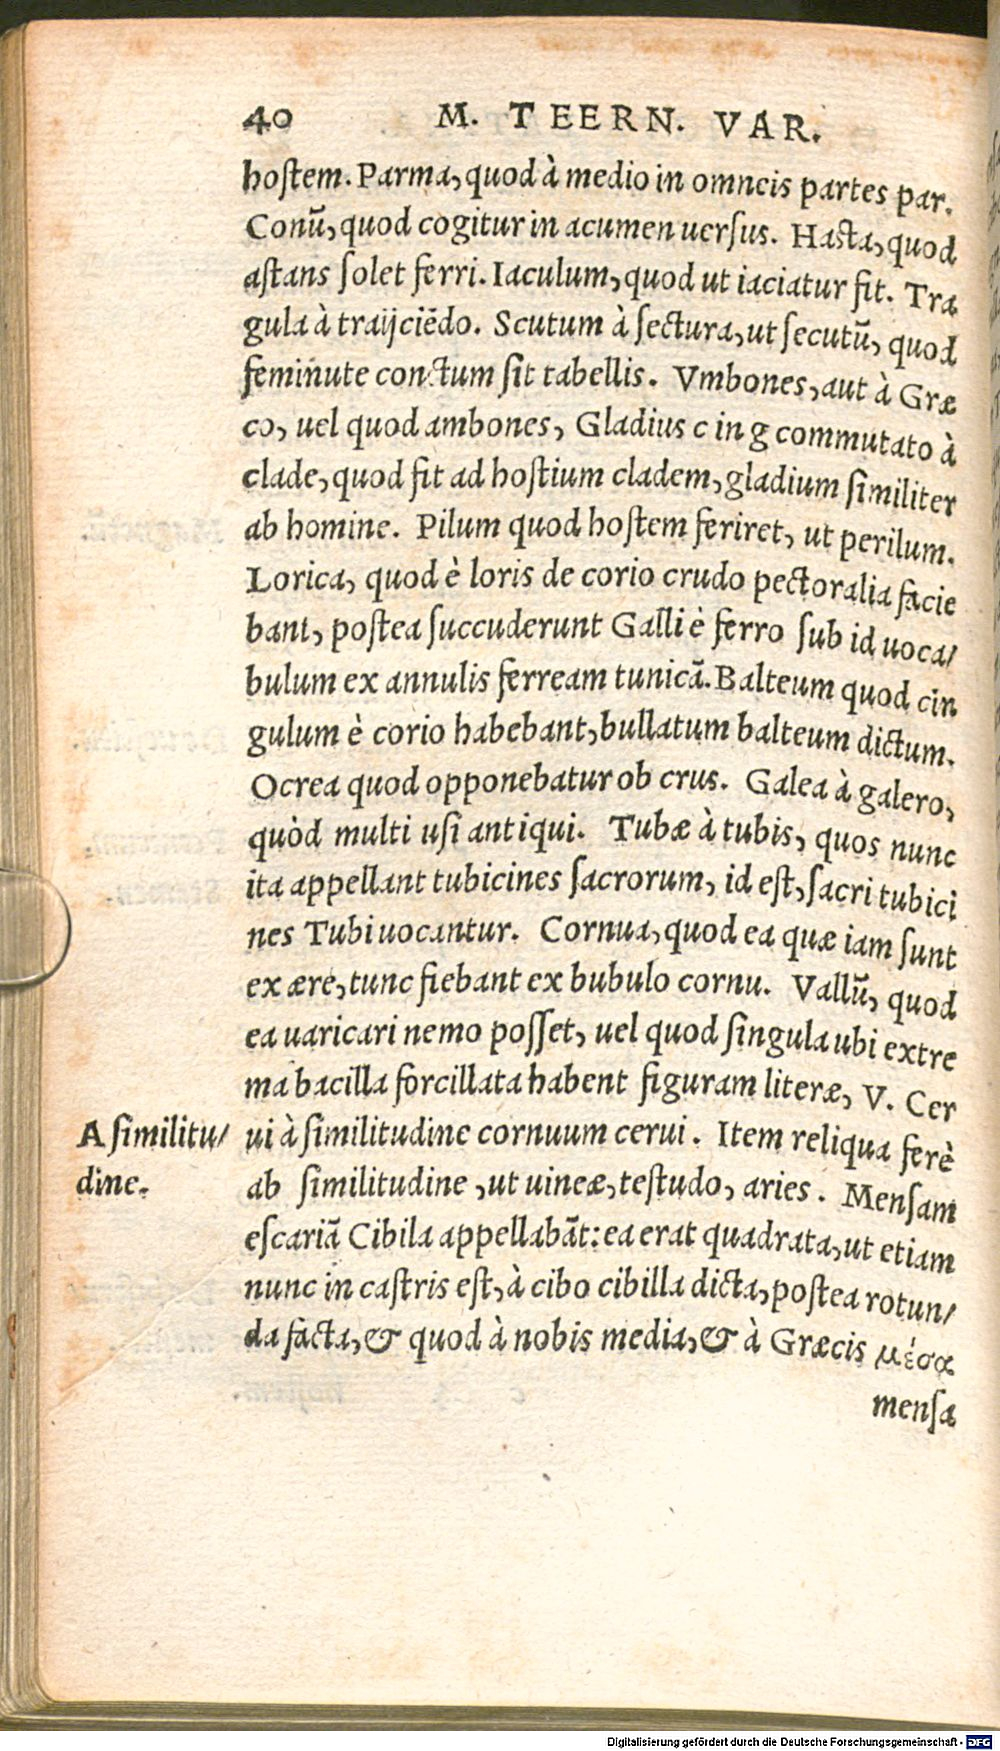 40 M. TEERN. VAR.
hoſtem. Parma, quod à medio in omneis partes par.
Conū, quod cogitur in acumen uerſus. Haſta, quod
aſtans ſolet ferri. Iaculum, quod ut iaciatur fit. Tra
gula à traijciēdo. Scutum à ſectura, ut ſecutū, quod
feminute conctum ſit tabellis. Vmbones, aut à Græ
co, uel quod ambones, Gladius c in g commutato à
clade, quod fit ad hoſtium cladem, gladium ſimiliter
ab homine. Pilum quod hoſtem feriret, ut perilum.
Lorica, quod è loris de corio crudo pectoralia facie
bant, poſtea ſuccuderunt Galli è ferro ſub id uoca/
bulum ex annulis ferream tunicā. Balteum quod cin
gulum è corio habebant, bullatum balteum dictum.
Ocrea quod opponebatur ob crus. Galea à galero,
quòd multi uſi antiqui. Tubæ à tubis, quos nunc
ita appellant tubicines ſacrorum, id eſt, ſacri tubici
nes Tubi uocantur. Cornua, quod ea quæ iam ſunt
ex ære, tunc fiebant ex bubulo cornu. Vallū, quod
ea uaricari nemo poſſet, uel quod ſingula ubi extre
ma bacilla forcillata habent figuram literæ, V. Cer
A ſimilitu/ ui à ſimilitudine cornuum cerui. Item reliqua ferè
dine. ab ſimilitudine, ut uineæ, teſtudo, aries. Menſam
eſcariā Cibila appellabāt: ea erat quadrata, ut etiam
nunc in caſtris eſt, à cibo cibilla dicta, poſtea rotun/
da facta, & quod à nobis media, & à Græcis μέσα
menſa
Digitalisierung gefördert durch die Deutsche Forschungsgemeinschaft - DFG